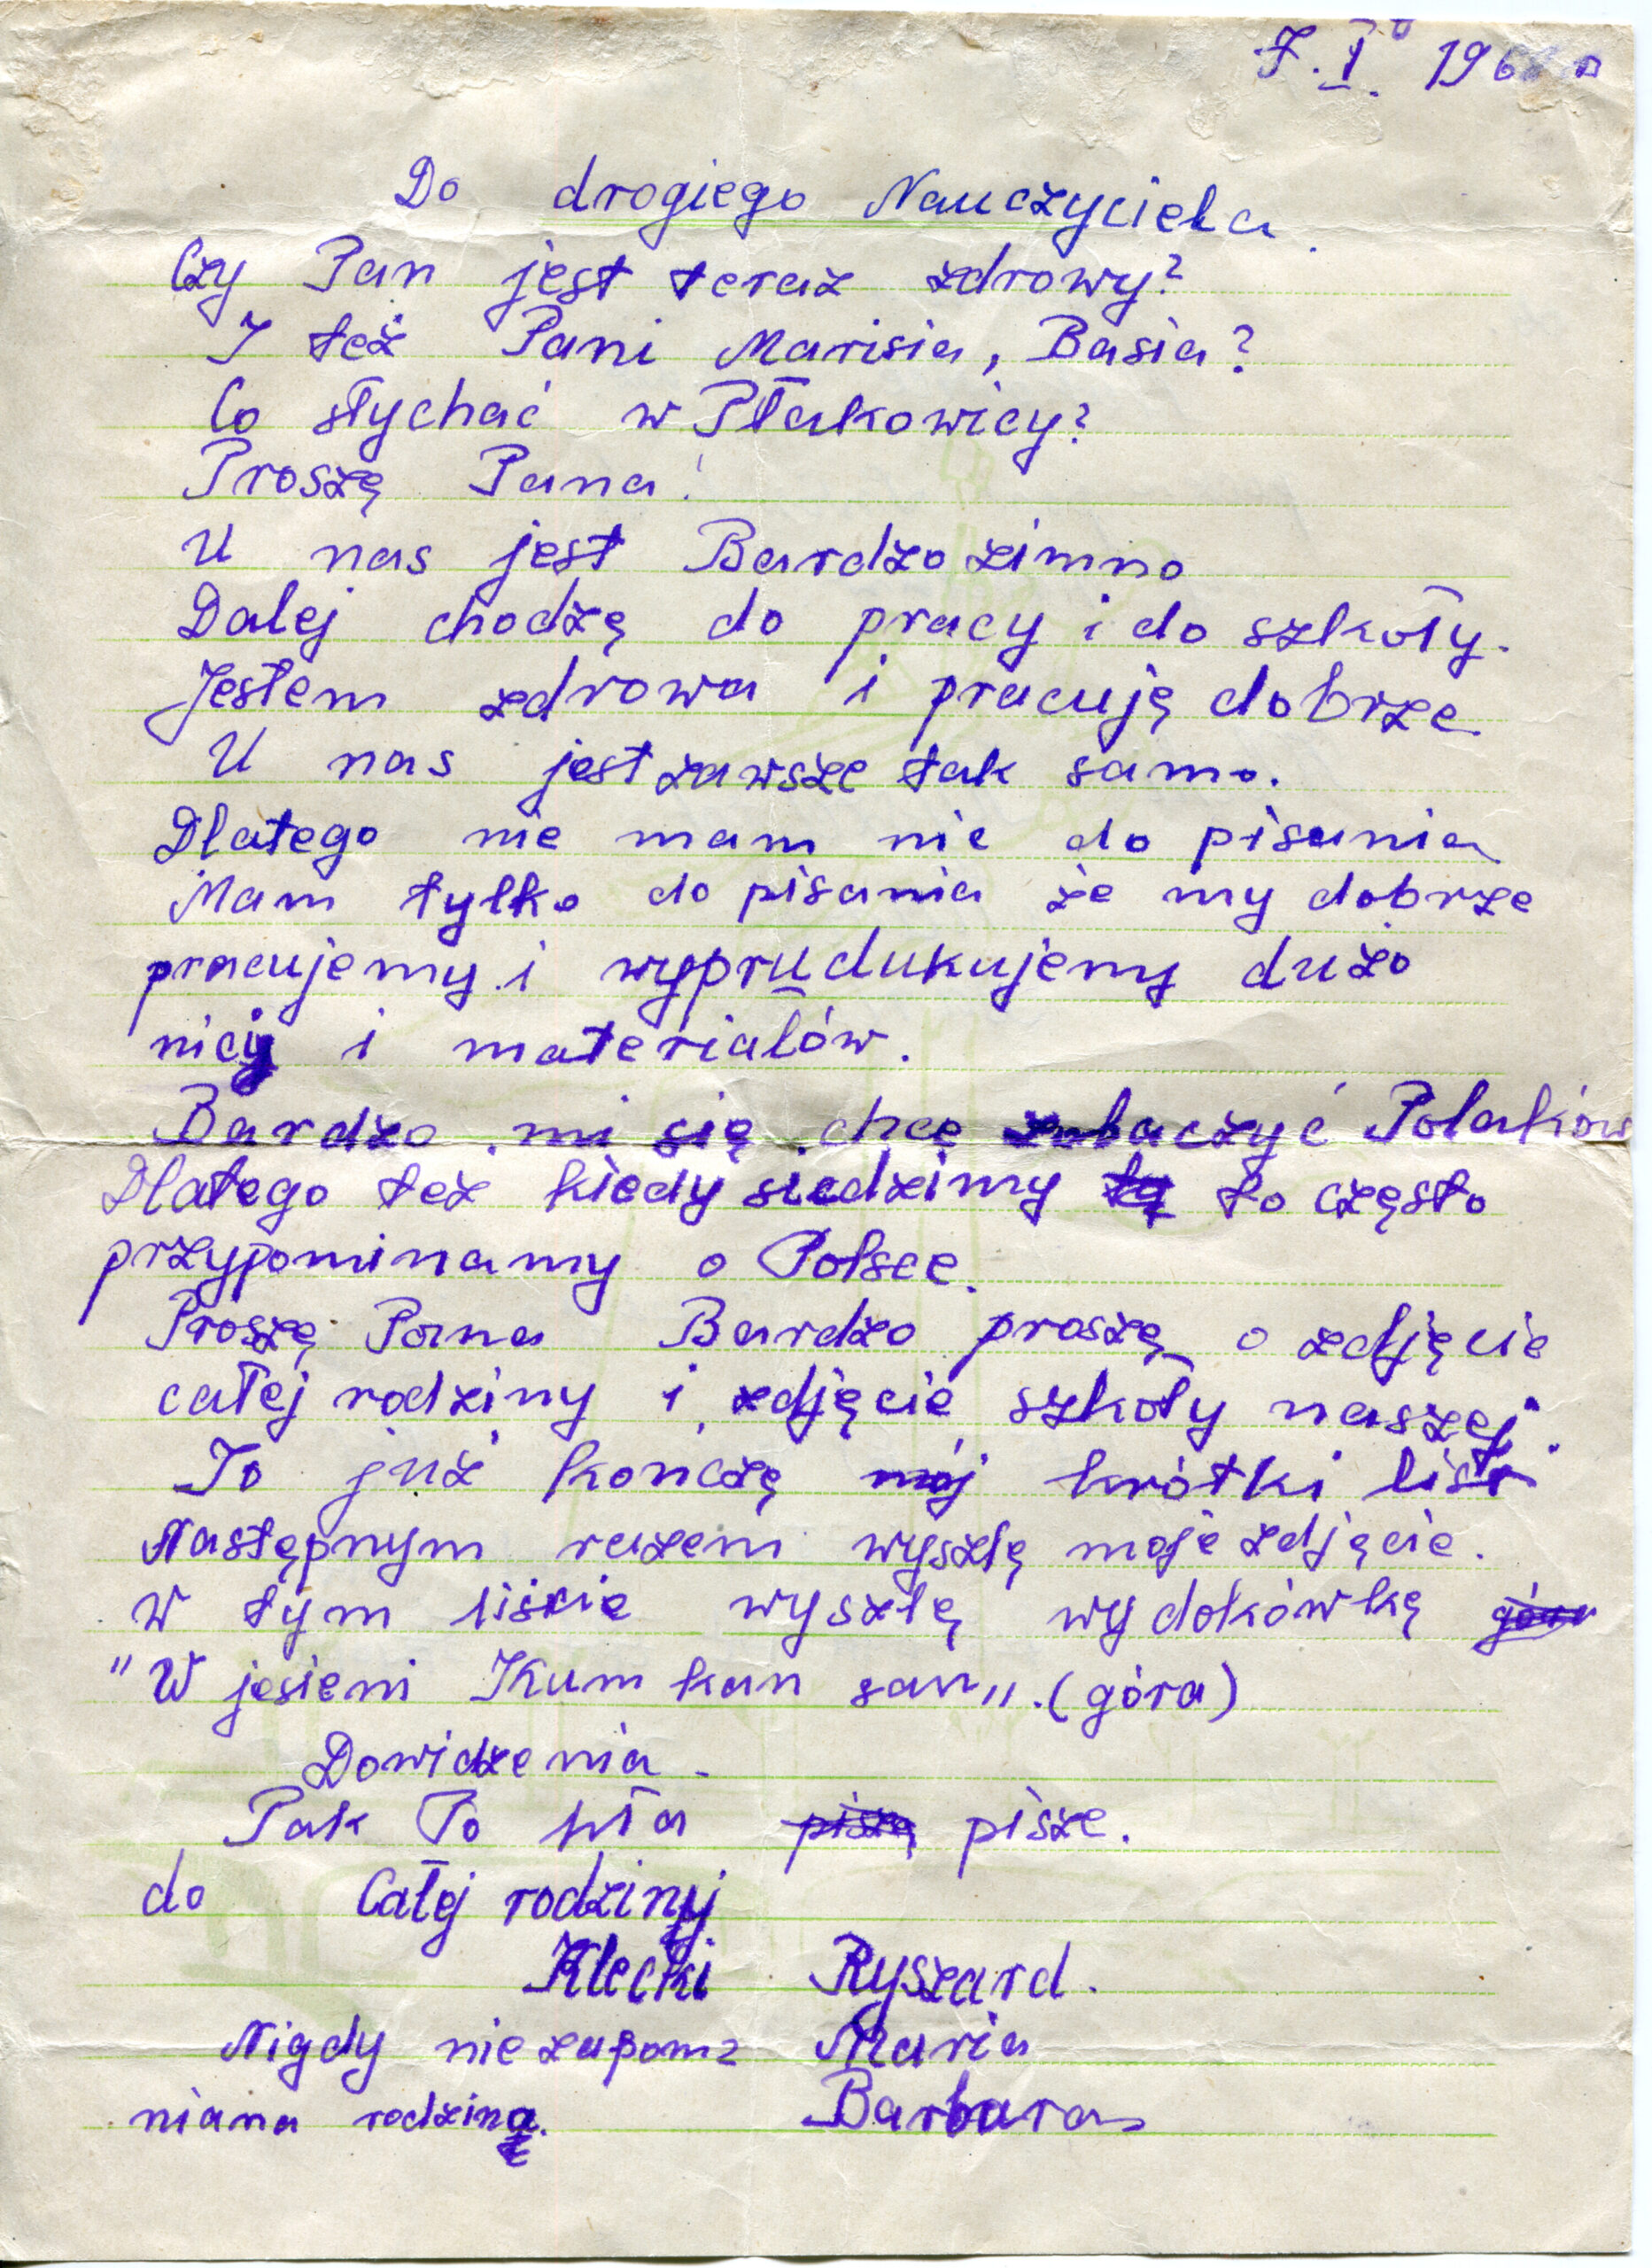 7. I. 196
Do drogiego Nauczyciela.
Czy Pan jest teraz zdrowy?
I też Pani Marisia, Basia?
Co słychać w Płakowicy?
Proszę Pana!
U nas jest Bardzo zimno
Dalej chodzę do pracy i do szkoły.
Jestem zdrowa i pracuję dobrze
U nas jest zawsze tak samo.
Dlatego nie mam nic do pisania
Mam tylko do pisania że my dobrze
pracujemy i wyprudukujemy dużo
nicy i materialów.
Bardzo mi się chcę zobaczyć Polaków
Dlatego też kiedy siedzimy tą to często
przypominamy o Polsce.
Proszę Pana Bardzo proszę o zdjęcie
całej rodziny i zdjęcie szkoły naszej.
To już kończę mój krótki list
Następnym razem wyszlę moje zdjęcie.
W tym liście wyszłę wydokówkę góra
"W jesieni Kum kan san". (góra)
Dowidzenia.
Pak To hła piszę pisze.
do Całej rodziny
Klecki Ryszard.
Nigdy niezapom= Maria
niana rodzina. Barbara